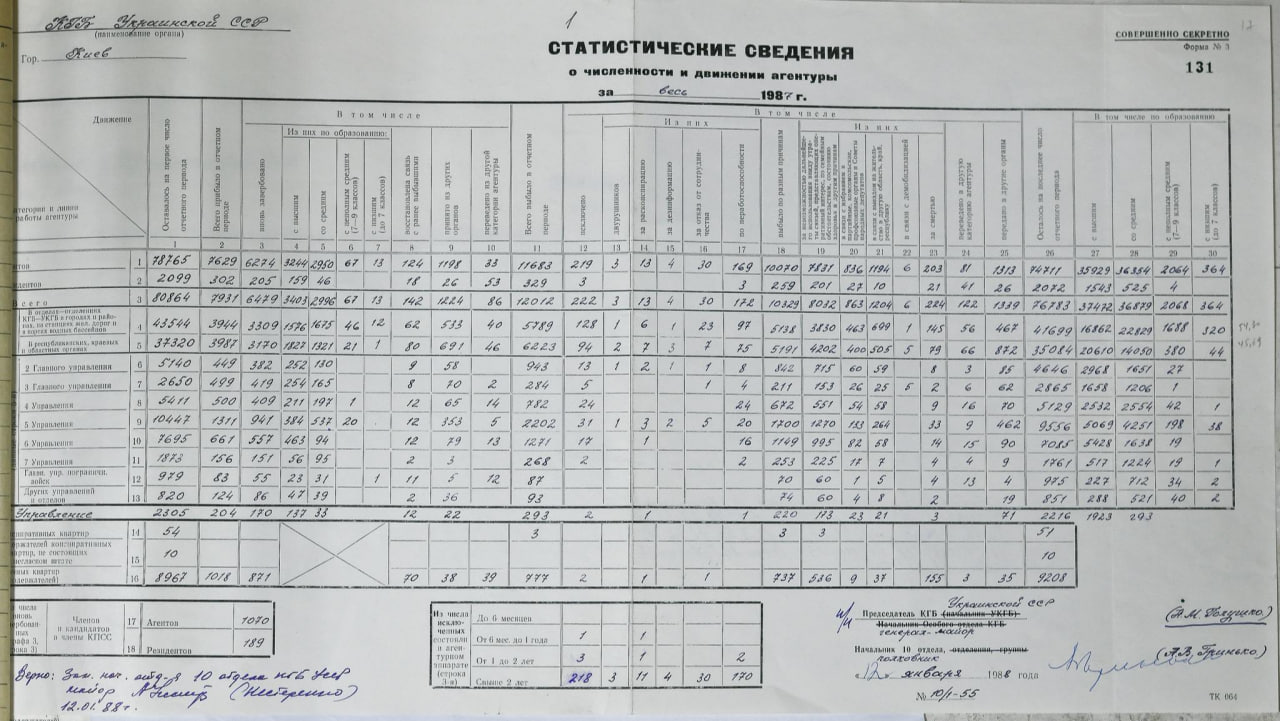 КГБ Украинской ССР
(наименование органа)
Гор. Киев
1
СТАТИСТИЧЕСКИЕ СВЕДЕНИЯ
о численности и движении агентуры
за весь 1987 г.
СОВЕРШЕННО СЕКРЕТНО
Форма № 3
131
17
Движение
атегории и линии
работы агентуры
Оставалось на первое число отчетного периода
Всего прибыло в отчетном периоде
В том числе
вновь завербовано
Из них по образованию:
с высшим
со средним
с неполным средним (7—9 классов)
с низшим (до 7 классов)
восстановлена связь с ранее выбывшими
принято из других органов
переведено из другой категории агентуры
Всего выбыло в отчетном периоде
В том числе
исключено
Из них
двурушников
за расконспирацию
за дезинформацию
за отказ от сотрудничества
по неработоспособности
выбыло по разным причинам
Из них
в связи с демобилизацией
за смертью
переведено в другую категорию агентуры
передано в другие органы
Осталось на последнее число отчетного периода
В том числе по образованию
с высшим
со средним
с неполным средним (7—9 классов)
с низшим (до 7 классов)
1 2 3 4 5 6 7 8 9 10 11 12 13 14 15 16 17 18 19 20 21 22 23 24 25 26 27 28 29 30
нтов 1 78765 7629 6274 3244 2950 67 13 124 1198 33 11683 219 3 13 4 30 169 10070 7831 836 1194 6 203 81 1313 74711 35929 36354 2064 364
идентов 2 2099 302 205 159 46 18 26 53 329 3 3 259 201 27 10 21 41 26 2072 1543 525 4
Всего 3 80864 7931 6479 3403 2996 67 13 142 1224 86 12012 222 3 13 4 30 172 10329 8032 863 1204 6 224 122 1339 76783 37472 36879 2068 364
В отделах—отделениях КГБ—УКГБ в городах и районах, на станциях жел. дорог и в портах водных бассейнов 4 43544 3944 3309 1576 1675 46 12 62 533 40 5789 128 1 6 1 23 97 5138 3830 463 699 145 56 467 41699 16862 22829 1688 320
В республиканских, краевых и областных органах 5 37320 3987 3170 1827 1321 21 1 80 691 46 6223 94 2 7 3 7 75 5191 4202 400 505 5 79 66 872 35084 20610 14050 380 44
2 Главного управления 6 5140 449 382 252 130 9 58 943 13 1 2 1 1 8 842 715 60 59 8 3 85 4646 2968 1651 27
3 Главного управления 7 2650 499 419 254 165 8 70 2 284 5 1 4 211 153 26 25 5 2 6 62 2865 1658 1206 1
4 Управления 8 5411 500 409 211 197 1 12 65 14 782 24 24 672 551 54 58 9 16 70 5129 2532 2554 42 1
5 Управления 9 10447 1311 941 384 537 20 12 353 5 2202 31 1 3 2 5 20 1700 1270 133 264 33 9 462 9556 5069 4251 198 38
6 Управления 10 7695 661 557 463 94 12 79 13 1271 17 1 16 1149 995 82 58 14 15 90 7085 5428 1638 19
7 Управления 11 1873 156 151 56 95 2 3 268 2 2 253 225 17 7 4 4 9 1761 517 1224 19 1
Главн. упр. погранич. войск 12 979 83 55 23 31 1 11 5 12 87 70 60 1 5 4 13 4 975 227 712 34 2
Других управлений и отделов 13 820 124 86 47 39 2 36 93 74 60 4 8 2 19 851 288 521 40 2
Управление 2305 204 170 137 33 12 22 293 2 1 1 220 173 23 21 3 71 2216 1923 293
спиративных квартир 14 54 3 3 3 51
держателей конспиративных квартир, не состоящих негласном штате 15 10 10
вных квартир одержателей) 16 8967 1018 871 70 38 39 777 2 1 1 737 536 9 37 155 3 35 9208
Членов и кандидатов в члены КПСС
17 Агентов 1070
18 Резидентов 189
Из числа исключенных состояли в агентурном аппарате (строка 3-я)
До 6 месяцев
От 6 мес. до 1 года 1 1
От 1 до 2 лет 3 1 2
Свыше 2 лет 218 3 11 4 30 170
Украинской ССР
и/и Председатель КГБ (начальник УКГБ)
Начальник Особого отдела КГБ
генерал-майор
(Н.М. Голушко)
Начальник 10 отдела, отделения, группы
полковник
(А.В. Гринько)
12 января 1988 года
№ 10/1-55
ТК 064
Верно: Зам. нач. отд-я 10 отдела КГБ УССР
майор (Нестеренко)
12.01.88г.